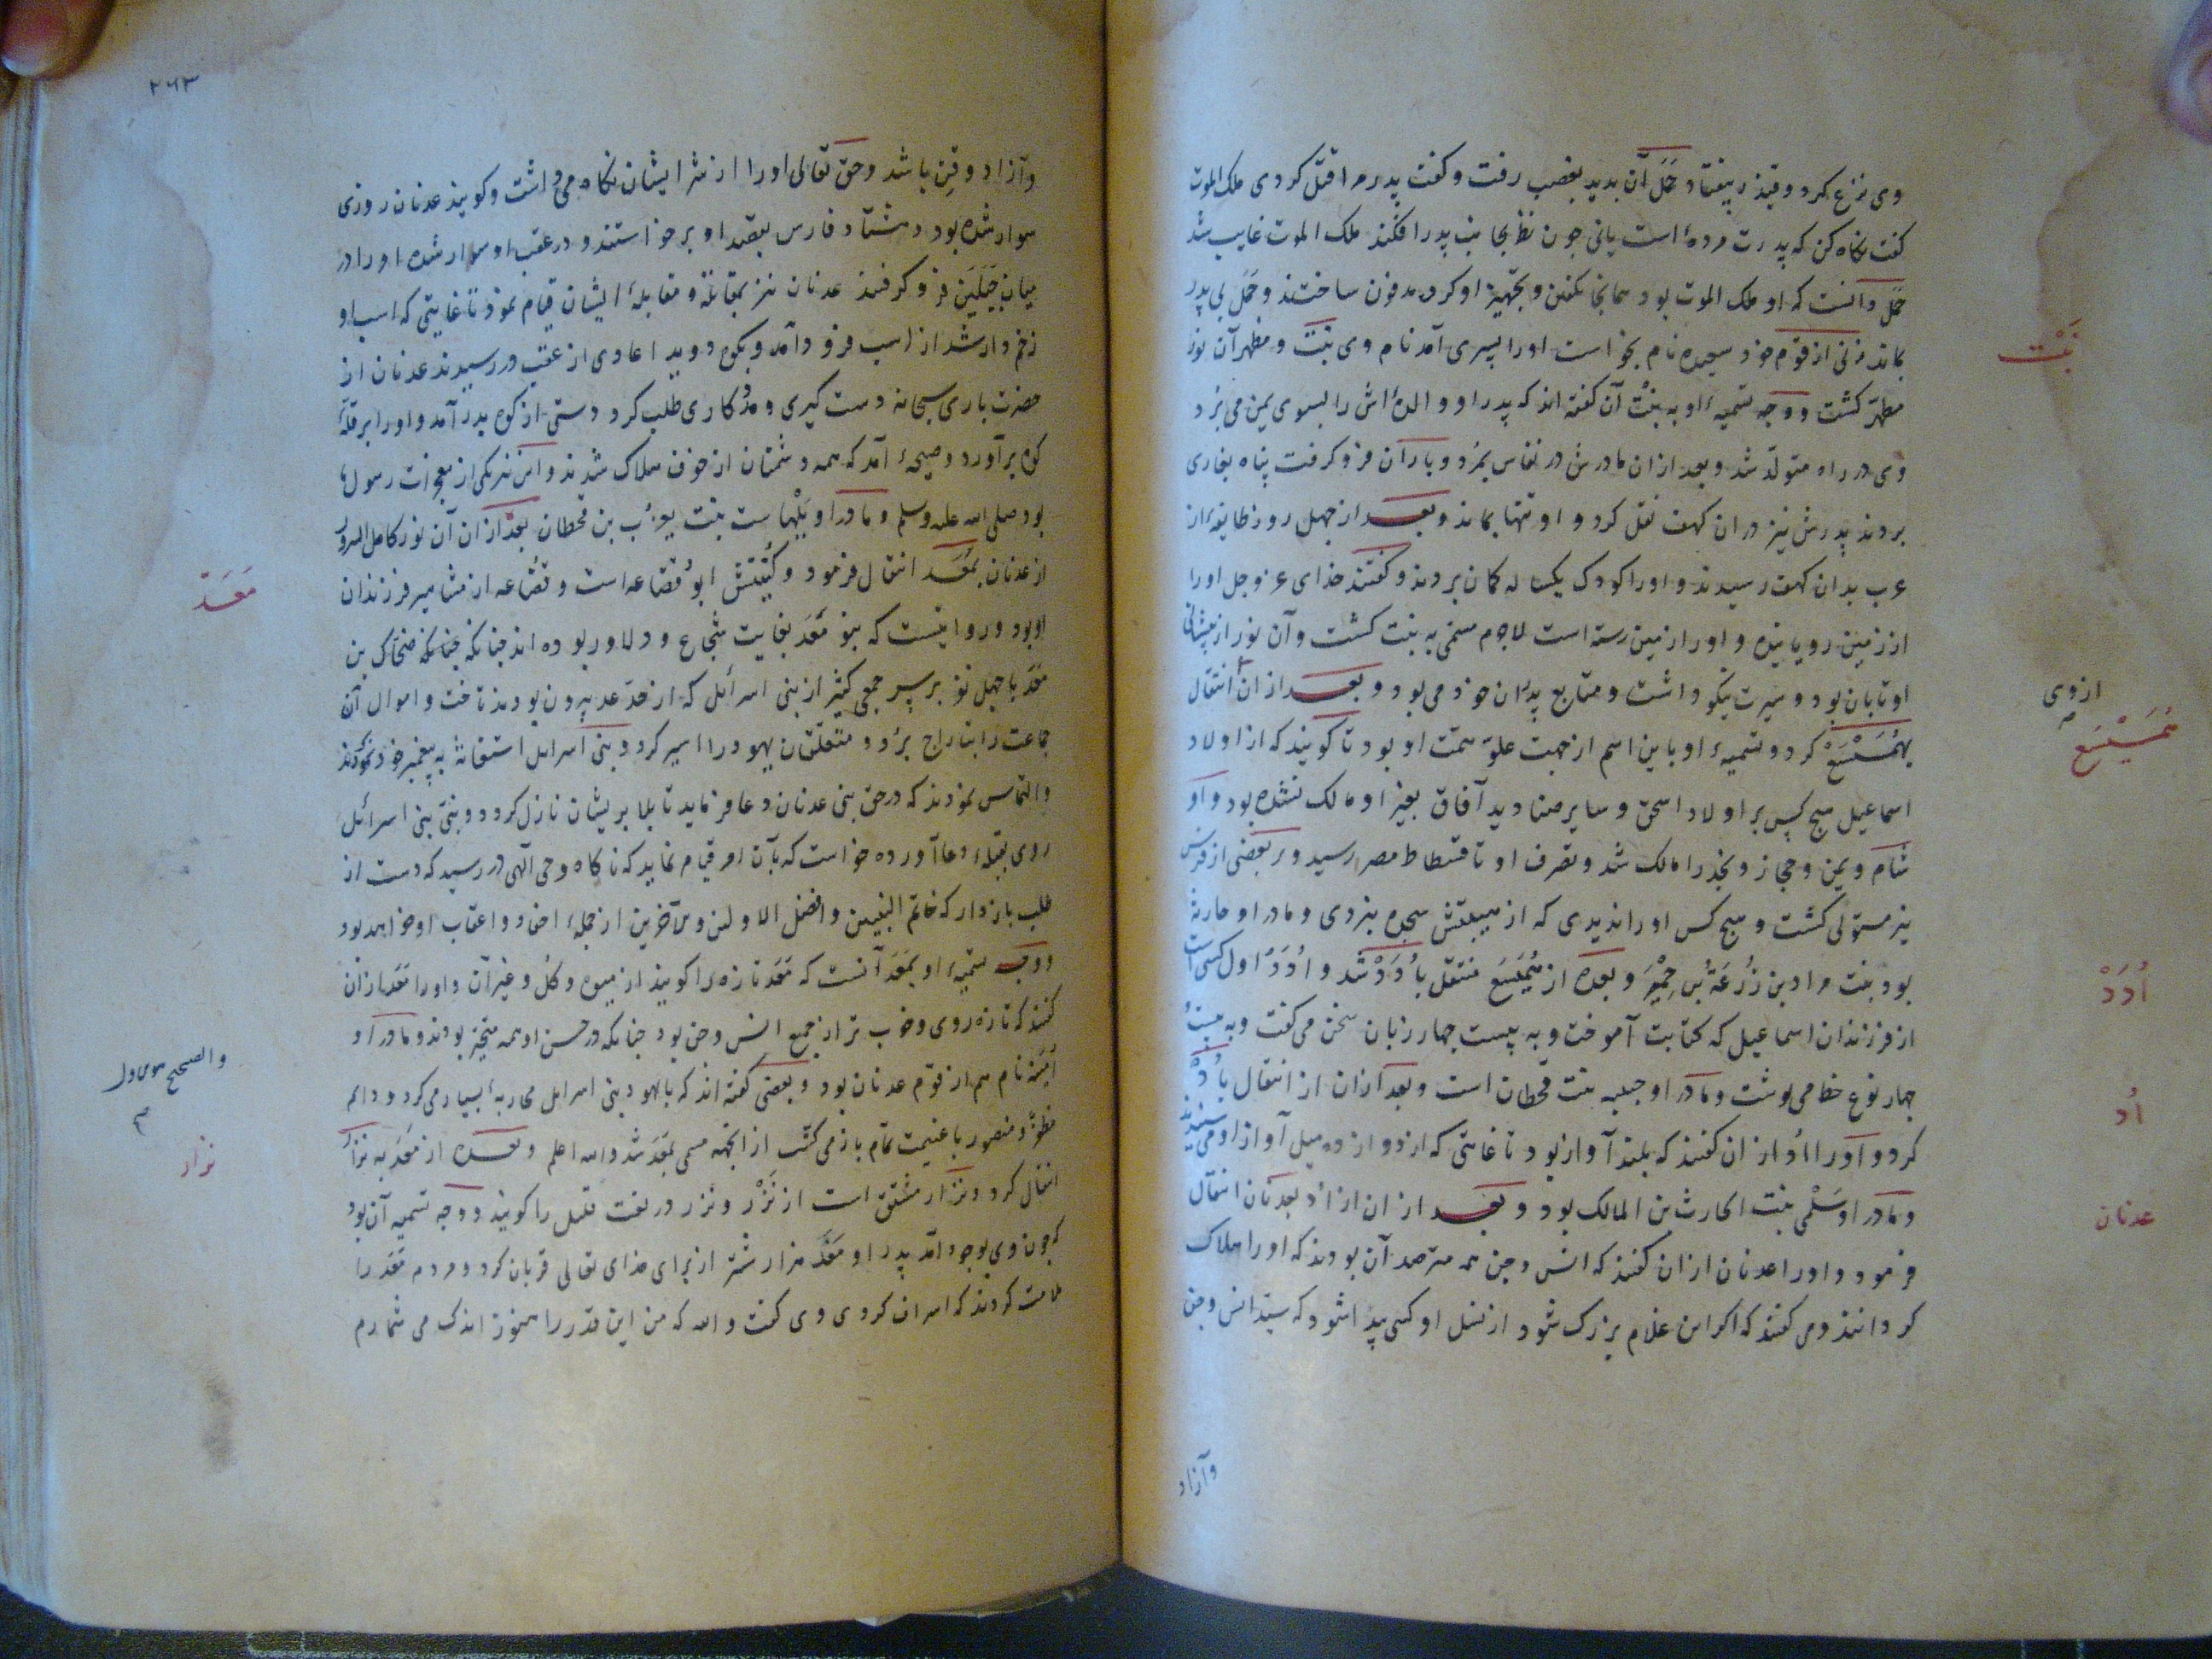 وی نزع کرد و قیذر بیفتاد حَمَل آن بدید بغضب رفت و کفت پدر مرا قتل کردی ملک الموت
کفت نکاه کن که پدرت مرده است یانی جون نظر بجانب پدر افکند ملک الموت غایب شد
حَمَل دانست که او ملک الموت بود همانجا تکفین و تجهیز او کرد مدفون ساختند و حَمَل بی پدر
بماند زنی از قوم خود سعیده نام بخواست اورا پسری آمد نام وی نبت و مظهر آن نور
مطهر کشت و وجه تسمیهٔ او به نبت آن کفته اند که پدر او والدهٔ اش را بسوی یمن می برد
وی در راه متولد شد و بعد ازان مادرش در نفاس بمرد و باران فرو کرفت پناه بغاری
بردند پدرش نیز دران کهف نقل کرد و او تنها بماند و بعد از جهل روز طایفهٔ از
عرب بدان کهف رسیدند و اورا کودک یکساله کمان بردند و کفتند خدای عز و جل اورا
از زمین رویانیده و او از زمین رسته است لاجرم مسمی به نبت کشت و آن نور از پیشانی
او تابان بود و سیرت نیکو داشت و متابع پدران خود می بود و بعد ازان انتقال
بهُمَیْسَعْ کرد و تسمیهٔ او باین اسم از جهت علو همت او بود تا کویند که از اولاد
اسماعیل هیج کس بر اولاد اسحق و سایر صنادید آفاق بغیر او مالک نشده بود و او
شام و یمن و حجاز و نجد را مالک شد و تصرف او تا فسطاط مصر رسید و بر بعضی از فرس
نیز مستولی کشت و هیج کس اورا ندیدی که از هیبتش سجده نبردی و مادر او حارثه
بود بنت مراد بن زُرعَه بن حِمْیَر و بعده از هُمَیْسَع منتقل باُدَدْ شد و اُدَدْ اول کسی است
از فرزندان اسماعیل که کتابت آموخت و به بیست جهار زبان سخن می کفت و به بیست
جهار نوع خط می نوشت و مادر او حبیبه بنت قحطان است و بعد ازان از انتقال باُد
کرد و او را اُد ازان کفتند که بلند آواز بود تا غایتی که از دوازده میل آواز او می شنیدند
و مادر او سَلْمی بنت الحارث بن المالک بود و بعد ازان از اُد بعدنان انتقال
فرمود و اورا عدنان ازان کفتند که انس و جن همه مترصد آن بودند که اورا هلاک
کردانند و می کفتند که اکر این غلام بزرک شود از نسل او کسی پیدا شود که سید انس و جن
وآزاد
نَبْت
ازوی
هُمَیْسَع
اُدَدْ
اُد
عدنان
۲۶۳
وآزاد و قِن باشد و حق تعالی اورا از شر ایشان نکاه می داشت و کویند عدنان روزی
سوار شده بود هشتاد فارس بقصد او برخواستند و در عقب او سوار شده اورا در
میان جَبَلَین فرو کرفتند عدنان نیز بمقاتله و مقابلهٔ ایشان قیام نمود تا غایتی که اسب او
زخم دار شد از اسب فرو دآمد و بکوه دوید اعادی از عقب در رسیدند عدنان از
حضرت باری سبحانه دست کیری و مددکاری طلب کرد دستی از کوه بدر آمد و اورا بر قلهٔ
کوه برآورد و صیحهٔ آمد که همه دشمنان از خوف هلاک شدند و این نیز یکی از معجزات رسول ما
بود صلی الله علیه وسلم و مادر او بَلْهاست بنت یعرُب بن قحطان بعد ازان آن نور کامل السرور
از عدنان بمَعَد انتقال فرمود و کُنیتش ابو قُضاعه است و قضاعه از مشاهیر فرزندان
او بود و روایتست که بنو مَعَد بغایت شجاع و دلاور بوده اند جنانکه جنانکه ضحاک بن
مَعَد با جهل نفر بر سر جمعی کثیر از بنی اسرائل که از حد عد بیرون بودند تاخت و اموال آن
جماعت را بتاراج بُرد و متعلقان یهود را اسیر کرد و بنی اسرایل استغاثه به پیغمبر خود نمودند
و التماس نمودند که در حق بنی عدنان دعا فرماید تا بلا بریشان نازل کردد و نبی بنی اسرائل
روی بقبلهٔ دعا آورده خواست که بآن امر قیام نماید که ناکاه وحی الهی در رسید که دست از
طلب بازدار که خاتم النبیین و افضل الاولین و الآخرین از جملهٔ احفاد و اعقاب او خواهد بود
و وجه تسمیهٔ او بمَعَد آنست که مَعَد تازه را کویند از میوه و کل و غیر آن و اورا مَعَد ازان
کفتند که تازه روی و خوب تر از جمیع انس و جن بود جنانکه در حسن او همه متحیر بودند و مادر او
نام هم از قوم عدنان بود و بعضی کفته اند که با یهود بنی اسرایل محاربهٔ بسیار می کرد و دایم
مظفر و منصور با غنیمت تمام باز می کشت از اینجهة مسمی بمَعَد شد والله اعلم و بعده از مَعَد به نزار
انتقال کرد و نزار مشتق است از نَزْر و نزر در لغت قلیل را کویند و وجه تسمیه آن بود
که جون وی بوجود آمد پدر او مَعَد هزار شتر از برای خدای تعالی قربان کرد و مردم مَعَد را
ملامت کردند که اسراف کردی وی کفت والله که من این قدر را هنوز اندک می شمارم
مَعَدّ
والصحیح هو الاول
نزار